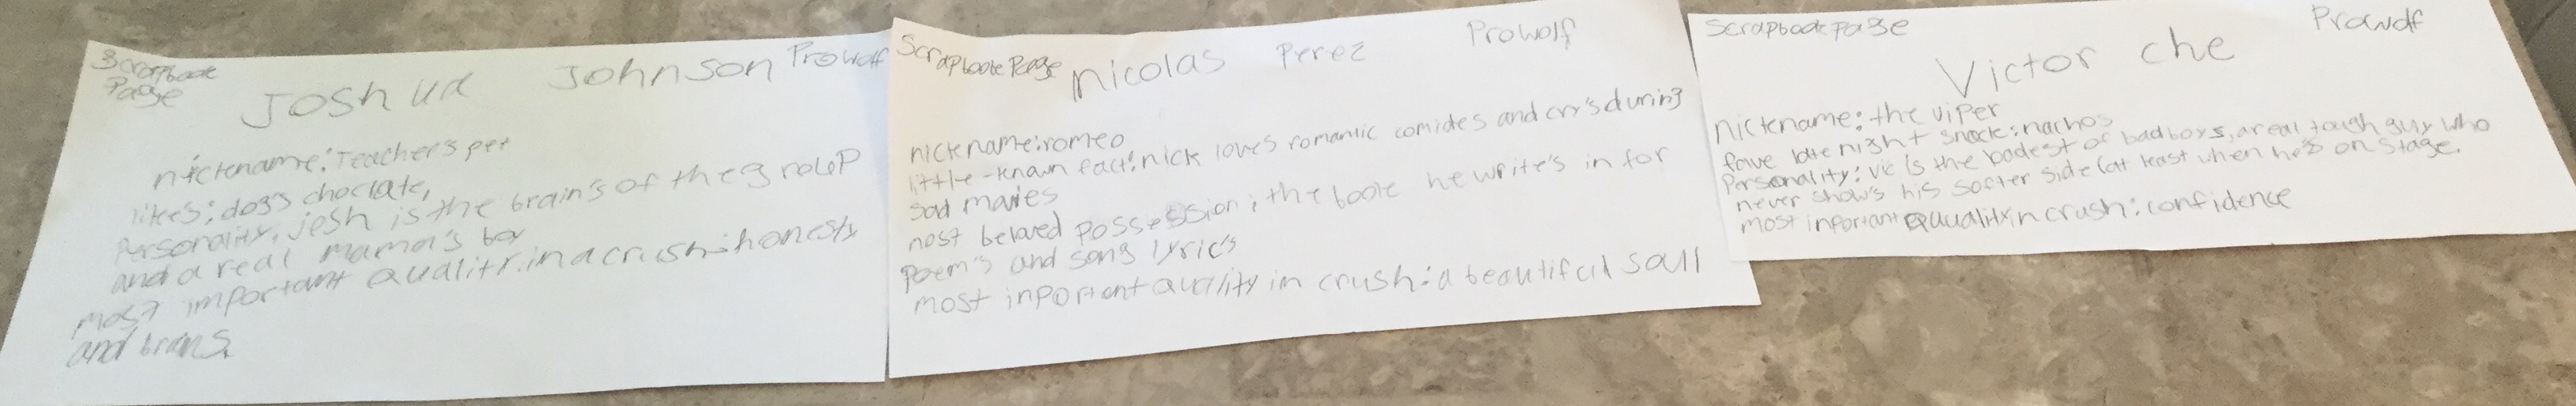 Scrapbook
Page
Joshua Johnson
Prowolf
nickname: Teachers pet
likes: dogs choclate,
Personality, josh is the brain's of the group
and a real mama's boy
most important quality in a crush: honesty
and brains.
Scrapbook Page
nicolas Perez
Prowolf
nickname: romeo
little-known fact: nick loves romantic comides and cry's during
sad movies
most beloved possession; the book he write's in for
poem's and song lyric's
most inportant quality in crush: a beautiful soul
Scrapbook page
Prowolf
Victor che
nickname: the viper
fave late night snack: nachos
Personality: vic is the badest of bad boys, a real tough guy who
never show's his softer side (at least when he's on stage.
most inportant quuality in crush: confidence